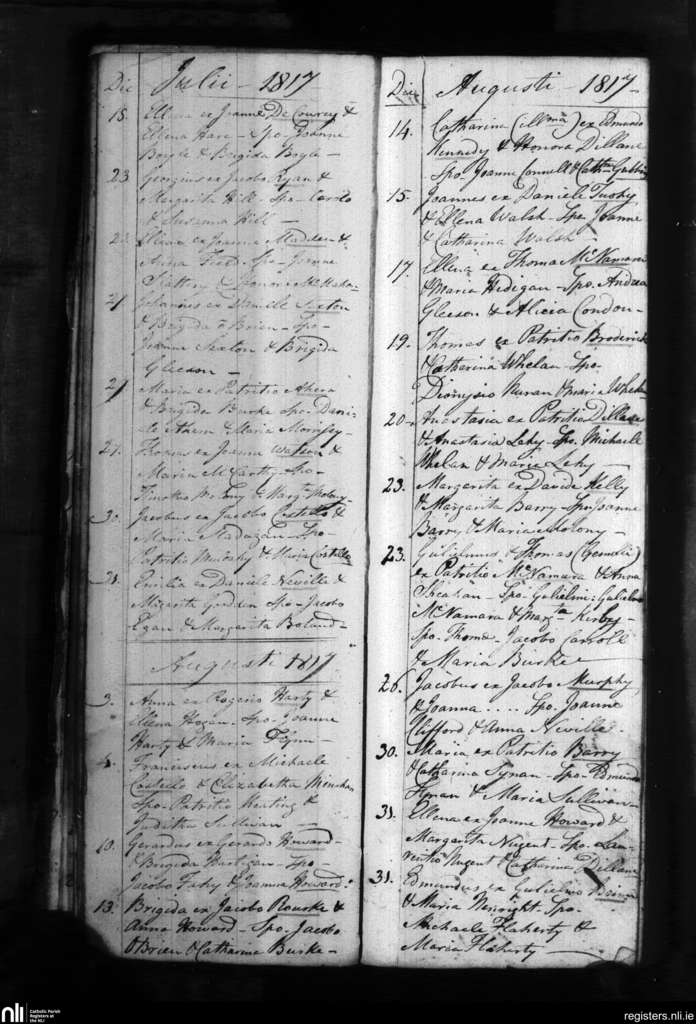 Die Julii - 1817
15. Ellena ex Joanne De Courcy &
Ellena Hare - Spo. Joanne
Boyle & Brigida Boyle -
23 Georgius ex Jacobo Ryan &
Margarita Hill - Spo. Carolo
& Susanna Hill -
Eliza ex Joanne Madden &
Anna Field Spo - Joanne
Slattery & Honora McMaho-
Johannes ex Daniele Sexton
& Brigida O Brien - Spo -
Joanne Sexton & Brigida
Gleeson -
27 Maria ex Patritio Ahern
& Brigida Burke Spo. Dani-
ele Ahern Maria Morrissy -
27. Thomas ex Joanne Watson &
Maria McCarthy Spo -
Timotheo & Margt.
30 Jacobus ex Jacobo Costello &
Maria Spo -
Patritio Murphy & Maria Costello
31. Emilia ex Daniele Neville &
Spo - Jacobo
Egan & Margarita Boland -
Augusti 1817
3. Anna ex Rogerio Harty &
Ellena Hogan - Spo. Joanne
Harty & Maria Flynn -
4. Franciscus ex Michaele
Costello & Elizabetha Minchan
Spo. Patritio Keating &
Juditha Sullivan -
10. Gerardus ex Gerardo Howard -
& Brigida Hartigan - Spo -
Jacobo Fahy & Joanna Howard
13. Brigida ex Jacobo Rourke &
Anna Howard - Spo. Jacobo
O Brien & Catharina Burke -
Die Augusti - 1817 -
14. Catharina (illma) ex Edmundo
Kennedy & Honora Dillane
Spo Joanne Connell & Cath. Gubbin
15. Joannes ex Daniele Tuohy
& Ellena Walsh - Spo. Joanne
& Catharina Walsh -
17. Ellena ex Thoma McNamara
& Maria Hedigan - Spo. Andrea
Gleeson & Alicia Condon -
19. Thomas ex Patritio Broderick
& Catharina Whelan - Spo -
Dionysio Nunan & Maria Whelan
20 - Anastasia ex Patritio Dillane
& Anastasia Lehy - Spo. Michaele
Whelan & Maria Lehy -
23. Margarita ex Davide Kelly
& Margarita Barry - Spo. Joanne
Barry & Maria Molony -
23. Gulielmus & Thomas (Gemelli)
ex Patritio McNamara & Anna
Sheahan - Spo. Gulielmi: Gulielmo
McNamara & Margta. Kirby -
Spo. Thomæ - Jacobo Carroll
& Maria Burke -
26. Jacobus ex Jacobo Murphy
& Joanna .... Spo. Joanne
Clifford & Anna Neville.
30. Maria ex Patritio Barry
& Catharina Tynan - Spo - Edmundo
Tynan & Maria Sullivan -
31. Ellena ex Joanne Howard &
Margarita Nugent Spo. Lau-
rentio Nugent & Catharina Dillane
31. Edmundus ex Gulielmo
& Maria Enright - Spo.
Michaele Flaherty &
Maria Flaherty -
nli Catholic Parish
Registers at
the NLI
registers.nli.ie